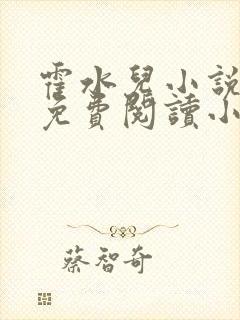 霍水兒小說
免費閱讀小
蔡智奇